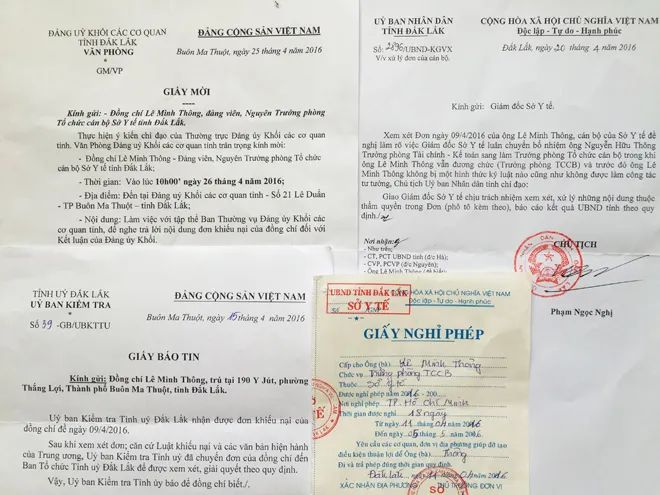 ĐẢNG ỦY KHỐI CÁC CƠ QUAN
TỈNH ĐẮK LẮK
VĂN PHÒNG
*
GM/VP
ĐẢNG CỘNG SẢN VIỆT NAM
Buôn Ma Thuột, ngày 25 tháng 4 năm 2016
GIẤY MỜI
Kính gửi: - Đồng chí Lê Minh Thông, đảng viên, Nguyên Trưởng phòng
Tổ chức cán bộ Sở Y tế tỉnh Đắk Lắk.
Thực hiện ý kiến chỉ đạo của Thường trực Đảng ủy Khối các cơ quan
tỉnh. Văn Phòng Đảng uỷ Khối các cơ quan tỉnh trân trọng kính mời:
- Đồng chí Lê Minh Thông - Đảng viên, Nguyên Trưởng phòng Tổ chức
cán bộ Sở Y tế tỉnh Đắk Lắk;
- Thời gian: Vào lúc 10h00' ngày 26 tháng 4 năm 2016;
- Địa điểm: Đến tại Đảng uỷ Khối các cơ quan tỉnh - Số 21 Lê Duẩn
- TP Buôn Ma Thuột – tỉnh Đắk Lắk;
- Nội dung: Làm việc với tập thể Ban Thường vụ Đảng ủy Khối các cơ
quan tỉnh, để nghe trả lời nội dung đơn khiếu nại của đồng chí đối với
Kết luận của Đảng ủy Khối.
UỶ BAN NHÂN DÂN
TỈNH ĐẮK LẮK
Số: 2896/UBND-KGVX
V/v xử lý đơn của cán bộ.
CỘNG HÒA XÃ HỘI CHỦ NGHĨA VIỆT NAM
Độc lập - Tự do - Hạnh phúc
Đắk Lắk, ngày 20 tháng 4 năm 2016
Kính gửi: Giám đốc Sở Y tế.
Xem xét Đơn ngày 09/4/2016 của ông Lê Minh Thông, cán bộ của Sở Y tế đề
nghị làm rõ việc Giám đốc Sở Y tế luân chuyển bổ nhiệm ông Nguyễn Hữu Thông
Trưởng phòng Tài chính - Kế toán sang làm Trưởng phòng Tổ chức cán bộ trong khi
ông Lê Minh Thông vẫn đương chức (Trưởng phòng TCCB) và trước đó ông Lê
Minh Thông không bị một hình thức kỷ luật nào cũng như không được làm công tác
tư tưởng, Chủ tịch Uỷ ban Nhân dân tỉnh chỉ đạo:
Giao Giám đốc Sở Y tế chịu trách nhiệm xem xét, xử lý những nội dung thuộc
thẩm quyền trong Đơn (phô tô kèm theo), báo cáo kết quả UBND tỉnh theo quy
định./.
Nơi nhận:
- Như trên;
- CT, PCT UBND tỉnh (đ/c Hà);
- CVP, PCVP (đ/c Nguyên);
- Ông Lê Minh Thông
CHỦ TỊCH
Phạm Ngọc Nghị
TỈNH UỶ ĐẮK LẮK
UỶ BAN KIỂM TRA
*
Số 39 -GB/UBKTTU
ĐẢNG CỘNG SẢN VIỆT NAM
Buôn Ma Thuột, ngày 15 tháng 4 năm 2016
GIẤY BÁO TIN
Kính gửi: Đồng chí Lê Minh Thông, trú tại 190 Y Jút, phường
Thắng Lợi, Thành phố Buôn Ma Thuột, tỉnh Đắk Lắk.
Uỷ ban Kiểm tra Tỉnh uỷ Đắk Lắk nhận được đơn khiếu nại của
đồng chí đề ngày 09/4/2016.
Sau khi xem xét đơn; căn cứ Luật khiếu nại và các văn bản hiện hành
của Trung ương, Uỷ ban Kiểm tra Tỉnh uỷ đã chuyển đơn của đồng chí đến
Ban Tổ chức Tỉnh uỷ Đắk Lắk để được xem xét, giải quyết theo quy định.
Vậy, Uỷ ban Kiểm tra Tỉnh ủy báo để đồng chí biết./.
UBND TỈNH ĐẮK LẮK
SỞ Y TẾ
HÒA XÃ HỘI CHỦ NGHĨA VIỆT NAM
Độc lập - Tự do - Hạnh phúc
GIẤY NGHỈ PHÉP
Cấp cho Ông (bà) Lê Minh Thông
Chức vụ Trưởng phòng TCCB
Thuộc Sở Y tế
Được nghỉ phép năm 2016 - 200
Nơi nghỉ phép TP. Hồ Chí Minh
Thời gian được nghỉ 18 ngày
Từ ngày 11 04 2016
Đến ngày 05 5 2016
Yêu cầu các cơ quan, đơn vị địa phương giúp đỡ tạo
điều kiện thuận lợi để Ông (bà) Thông
Đi và trả phép đúng thời gian quy định.
Đắk Lắk, ngày 11 tháng 04 2016
XÁC NHẬN ĐỊA PHƯƠNG
THỦ TRƯỞNG ĐƠN VỊ
SỞ